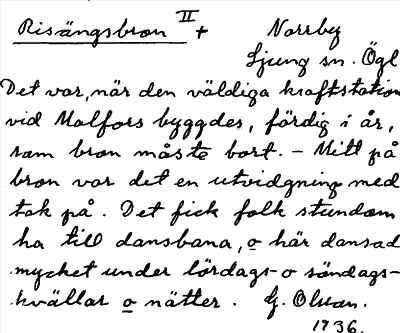 Risängsbron II + Norrby
Ljung sn. Ögl
Det var, när den väldiga kraftstation
vid Malfors byggdes, färdig i år,
som bron måste bort. - Mitt på
bron var det en utvidgning med
tak på. Det fick folk stundom
ha till dansbana, o här dansad
mycket under lördags- o söndags-
kvällar o nätter. G. Olsson.
1936.